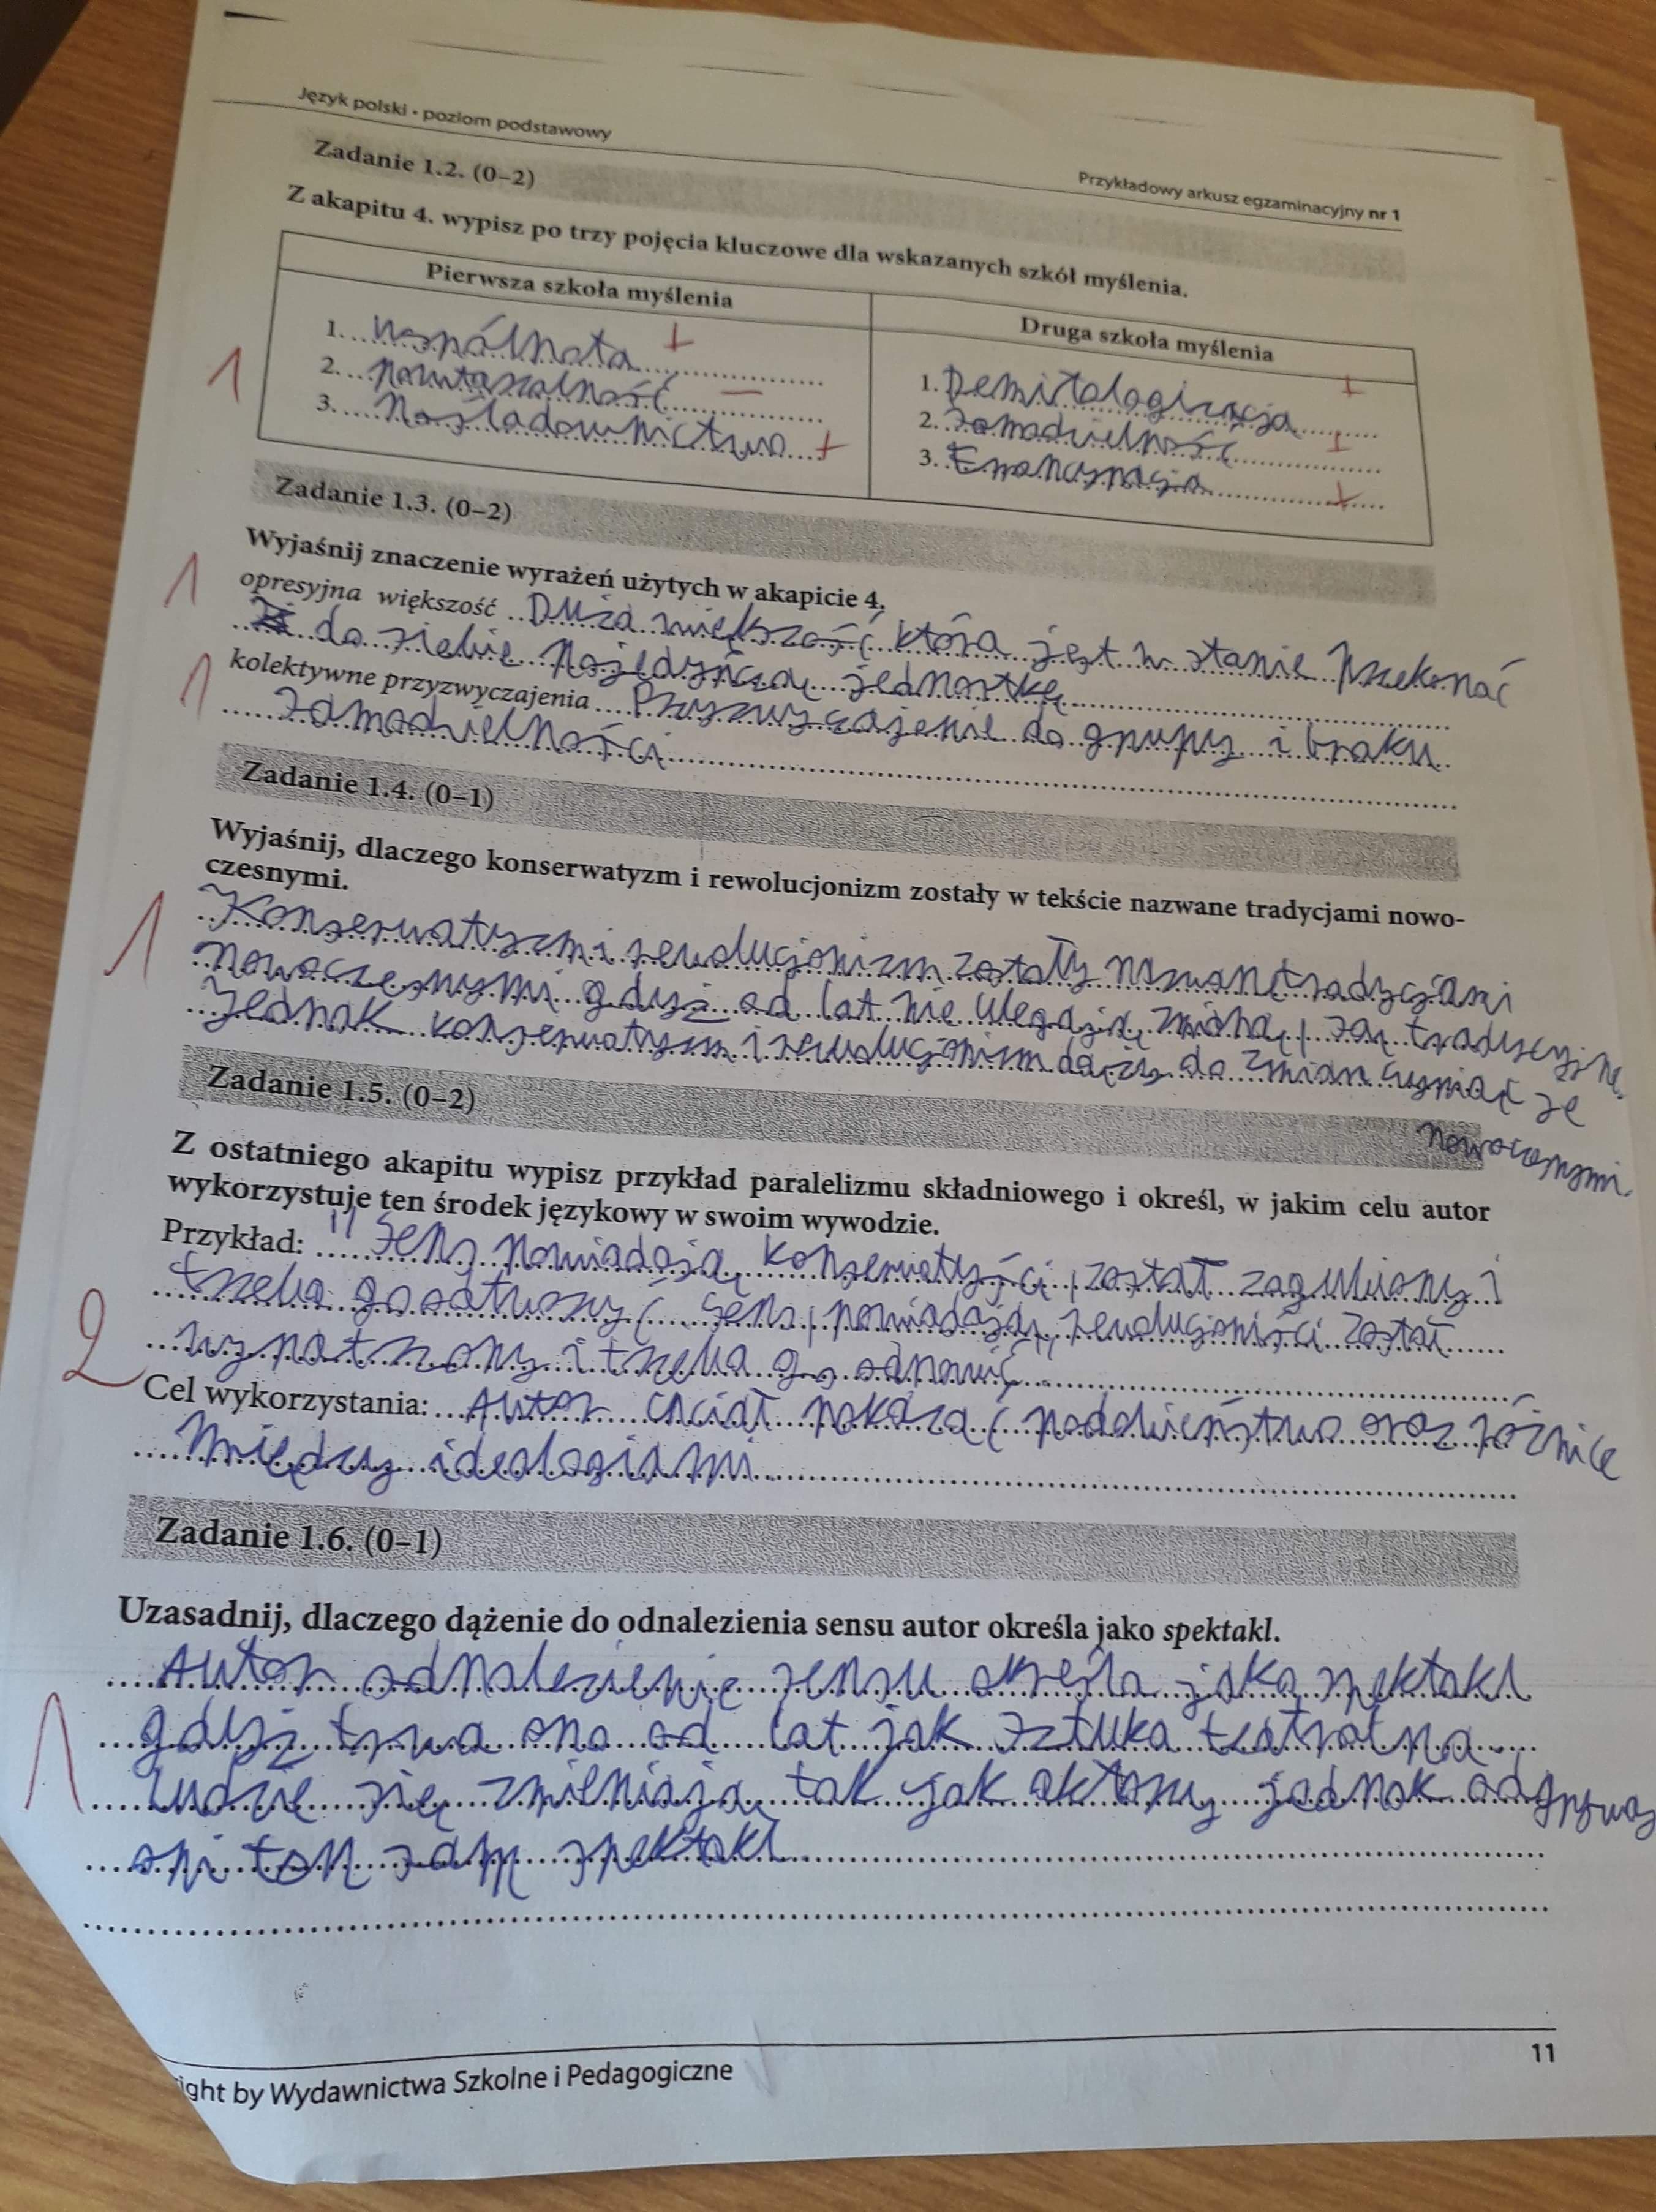 Język polski • poziom podstawowy
Przykładowy arkusz egzaminacyjny nr 1
Zadanie 1.2. (0–2)
Z akapitu 4. wypisz po trzy pojęcia kluczowe dla wskazanych szkół myślenia.
Pierwsza szkoła myślenia
1. Wspólnota +
2. Powtarzalność –
3. Naśladownictwo +
1
Druga szkoła myślenia
1. Demitologizacja +
2. Samodzielność +
3. Emancypacja +
Zadanie 1.3. (0–2)
Wyjaśnij znaczenie wyrażeń użytych w akapicie 4.
1 opresyjna większość Duża większość która jest w stanie przekonać
do siebie pojedyńczą jednostkę
1 kolektywne przyzwyczajenia Przyzwyczajenie do grupy i braku
samodzielności
Zadanie 1.4. (0–1)
Wyjaśnij, dlaczego konserwatyzm i rewolucjonizm zostały w tekście nazwane tradycjami nowo-
czesnymi.
1 Konserwatyzm i rewolucjonizm zostały nazwane tradycjami
nowoczesnymi gdyż od lat nie ulegają zmianą, są tradycyjne.
Jednak konserwatyzm i rewolucjonizm dążą do zmian
nowoczesnymi
Zadanie 1.5. (0–2)
Z ostatniego akapitu wypisz przykład paralelizmu składniowego i określ, w jakim celu autor
wykorzystuje ten środek językowy w swoim wywodzie.
Przykład: " Sens, powiadają konserwatyści, został zagubiony i
trzeba go odtworzyć. Sens, powiadają, rewolucjoniści został
wypatrzony i trzeba go odnowić"
2
Cel wykorzystania: Autor chciał pokazać podobieństwo oraz różnice
między ideologiami
Zadanie 1.6. (0–1)
Uzasadnij, dlaczego dążenie do odnalezienia sensu autor określa jako spektakl.
Autor odnalezienie sensu określa jako spektakl
1 gdyż trwa ono od lat jak sztuka teatralna.
Ludzie się zmieniają tak jak aktorzy jednak odgrywają
oni ten sam spektakl
ight by Wydawnictwa Szkolne i Pedagogiczne
11